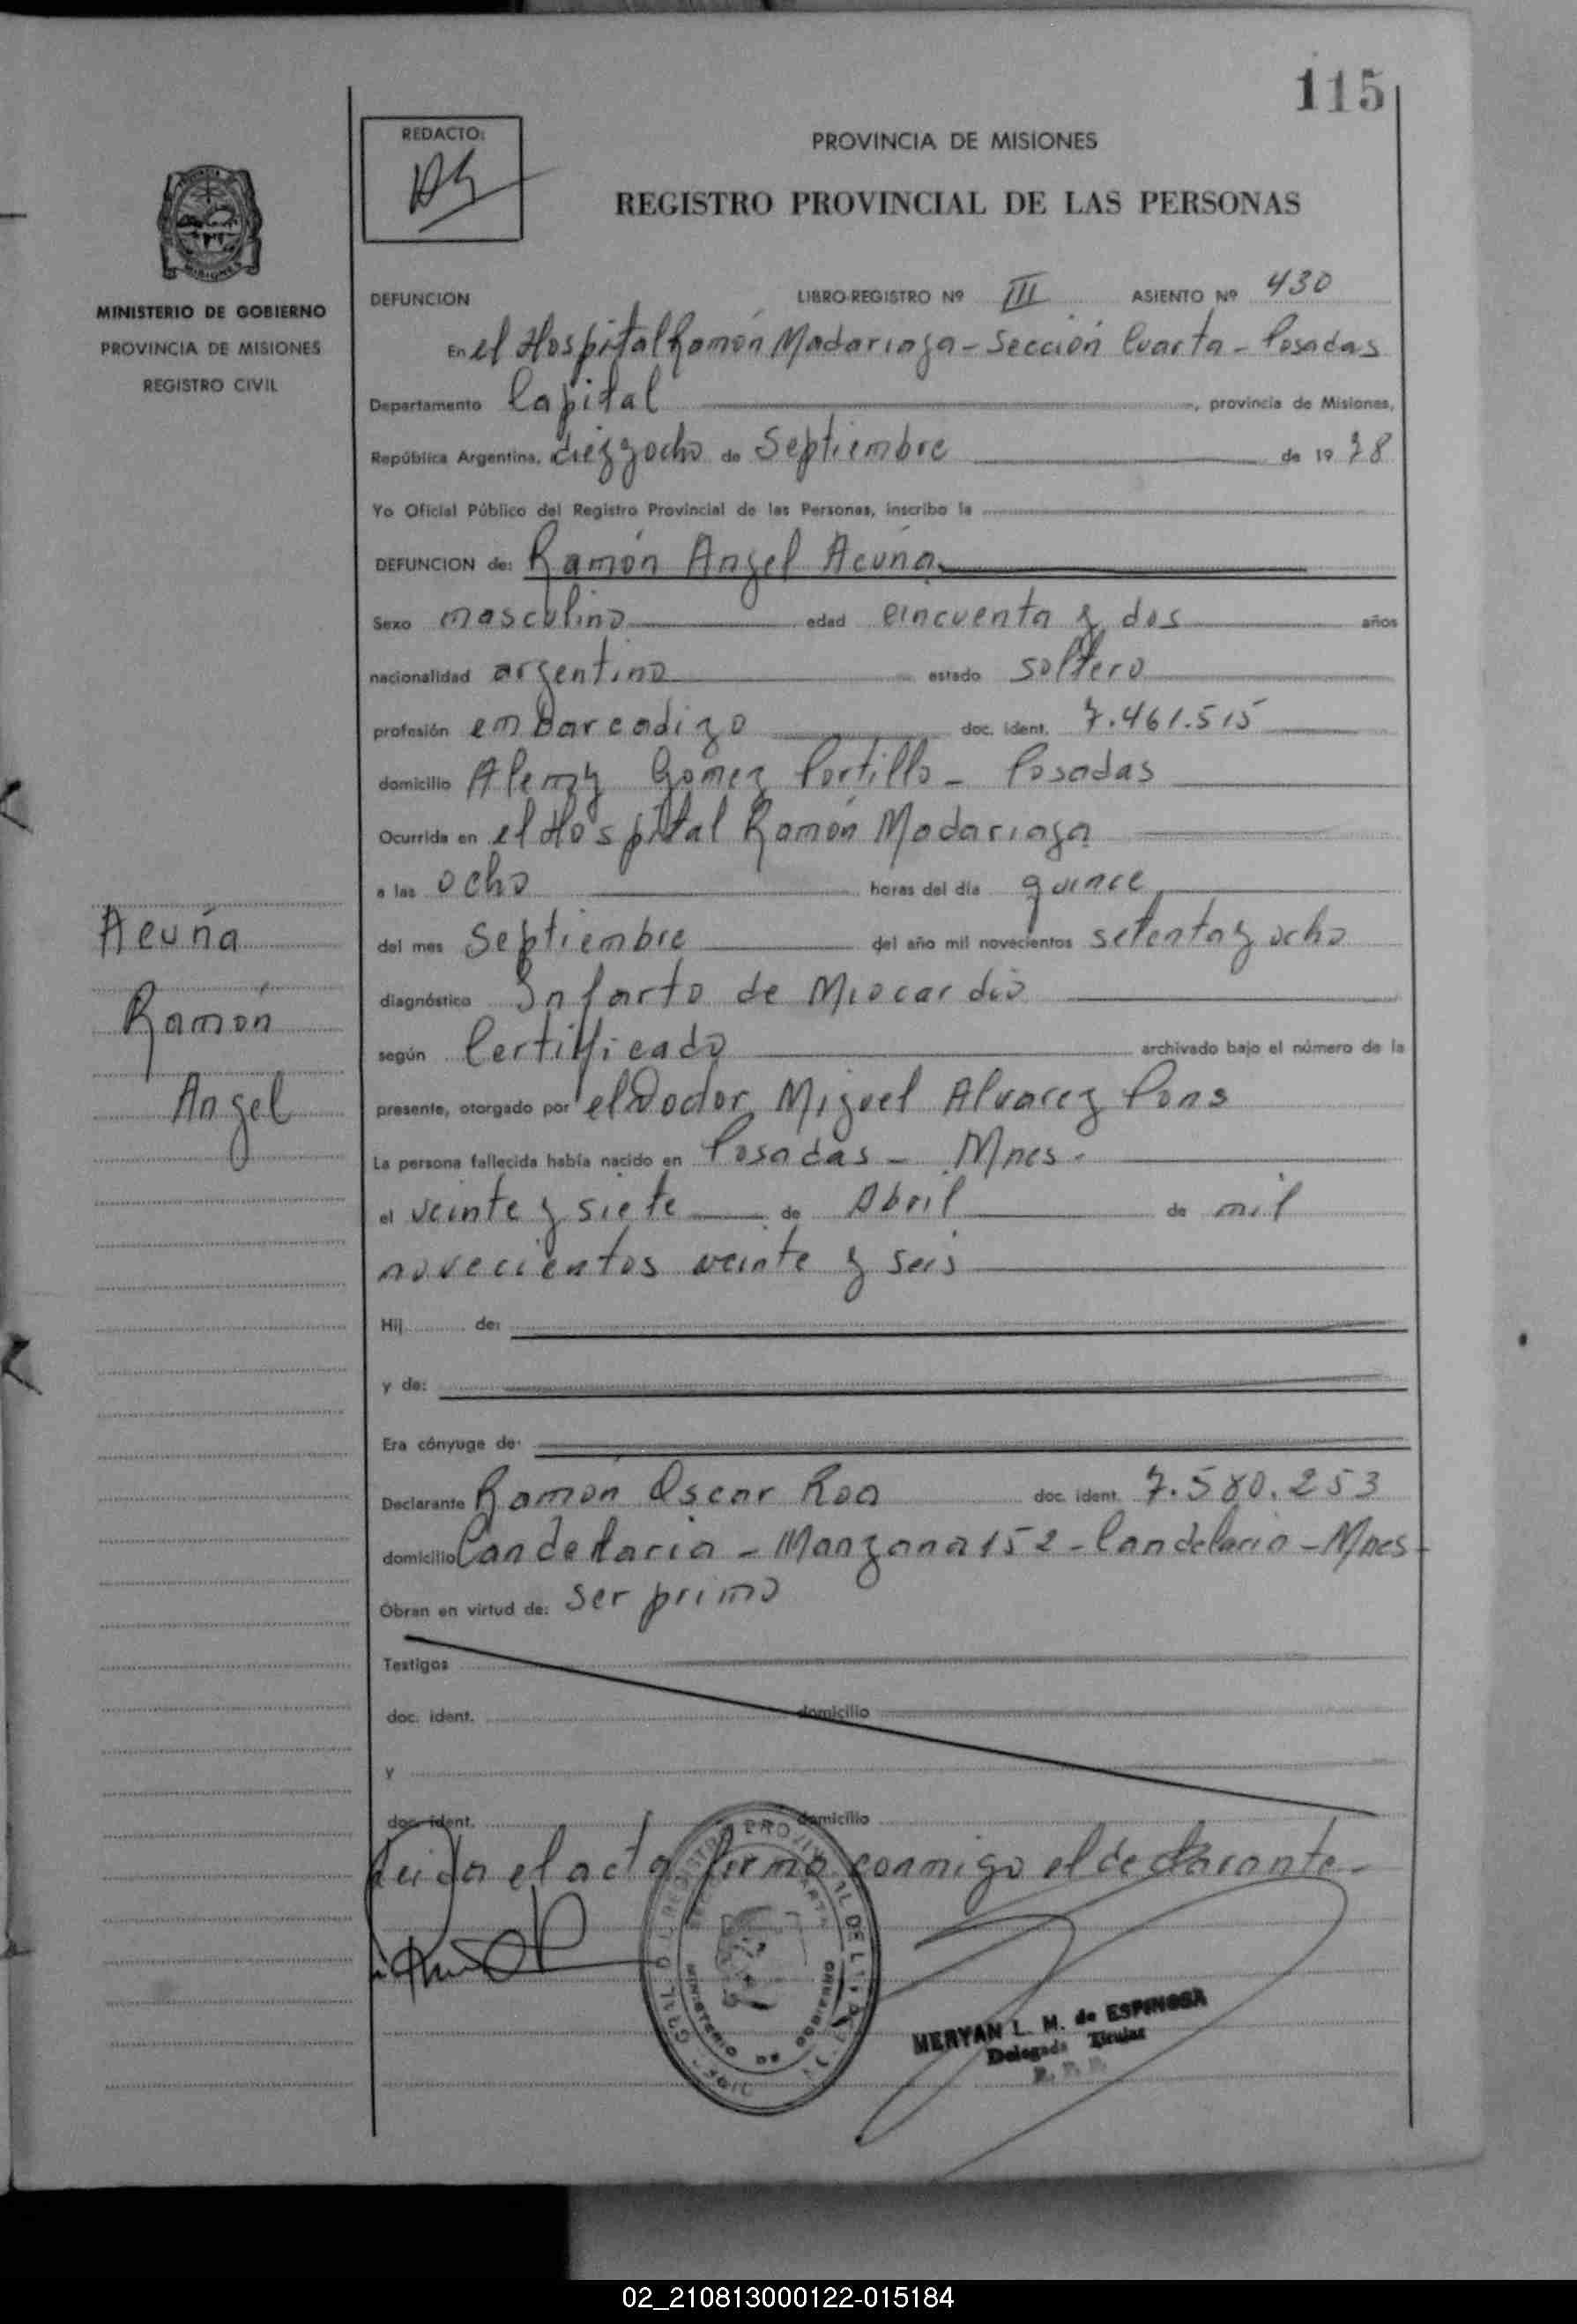 115
REDACTO:
PROVINCIA DE MISIONES
REGISTRO PROVINCIAL DE LAS PERSONAS
MINISTERIO DE GOBIERNO
PROVINCIA DE MISIONES
REGISTRO CIVIL
DEFUNCION LIBRO-REGISTRO Nº III ASIENTO Nº 430
En el Hospital Ramón Madariaga - Sección Cuarta - Posadas
Departamento Capital, provincia de Misiones,
República Argentina, diez y ocho de Septiembre de 19 78
Yo Oficial Público del Registro Provincial de las Personas, inscribo la
DEFUNCION de: Ramón Angel Acuña
Sexo masculino edad cincuenta y dos años
nacionalidad argentino estado soltero
profesión embarcadizo doc. ident. 7.461.515
domicilio Alem y Gomez Portillo - Posadas
Ocurrida en el Hospital Ramón Madariaga
a las ocho horas del día quince
del mes Septiembre del año mil novecientos setenta y ocho
diagnóstico Infarto de Miocardio
según Certificado archivado bajo el número de la
presente, otorgado por el Doctor Miguel Alvarez Pons
La persona fallecida había nacido en Posadas - Mnes.
el veinte y siete de Abril de mil
novecientos veinte y seis
Hij de:
y de:
Era cónyuge de:
Declarante Ramón Oscar Roa doc. ident. 7.580.253
domicilio Candelaria - Manzana 152 - Candelaria - Mnes
Obran en virtud de: ser primo
Testigos
doc. ident. domicilio
y
doc. ident. domicilio
Leida el acta firma conmigo el declarante.
Acuña
Ramón
Angel
MINISTERIO DE GOBIERNO
MERYAN L. M. de ESPINOSA
Delegada Titular
R. P. P.
02_210813000122-015184